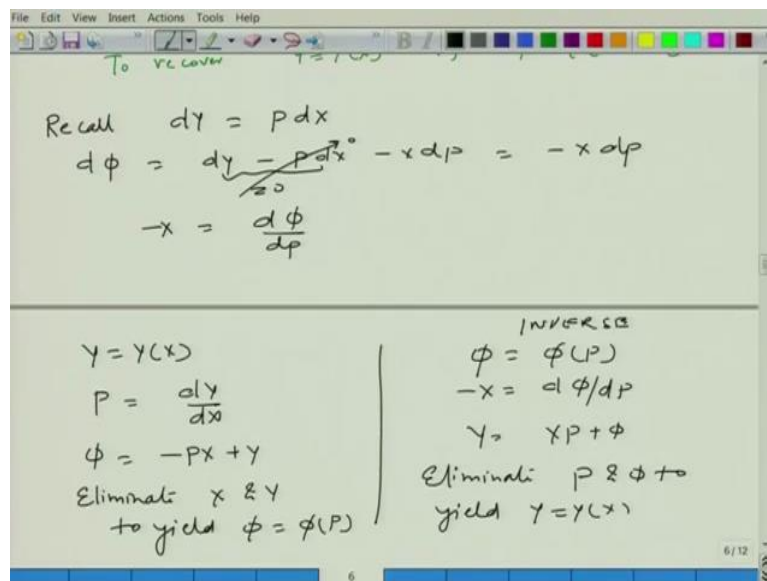 File Edit View Insert Actions Tools Help
B I
To recover
Recall dY = P dX
dφ = dy - Pdx° - xdp = - x dp
= 0
-x = dφ/dp
Y = Y(X)
P = dY/dX
φ = -PX + Y
Eliminate X & Y
to yield φ = φ(P)
INVERSE
φ = φ(P)
-X = dφ/dP
Y = XP + φ
Eliminate P & φ to
yield Y = Y(X)
6/12
6